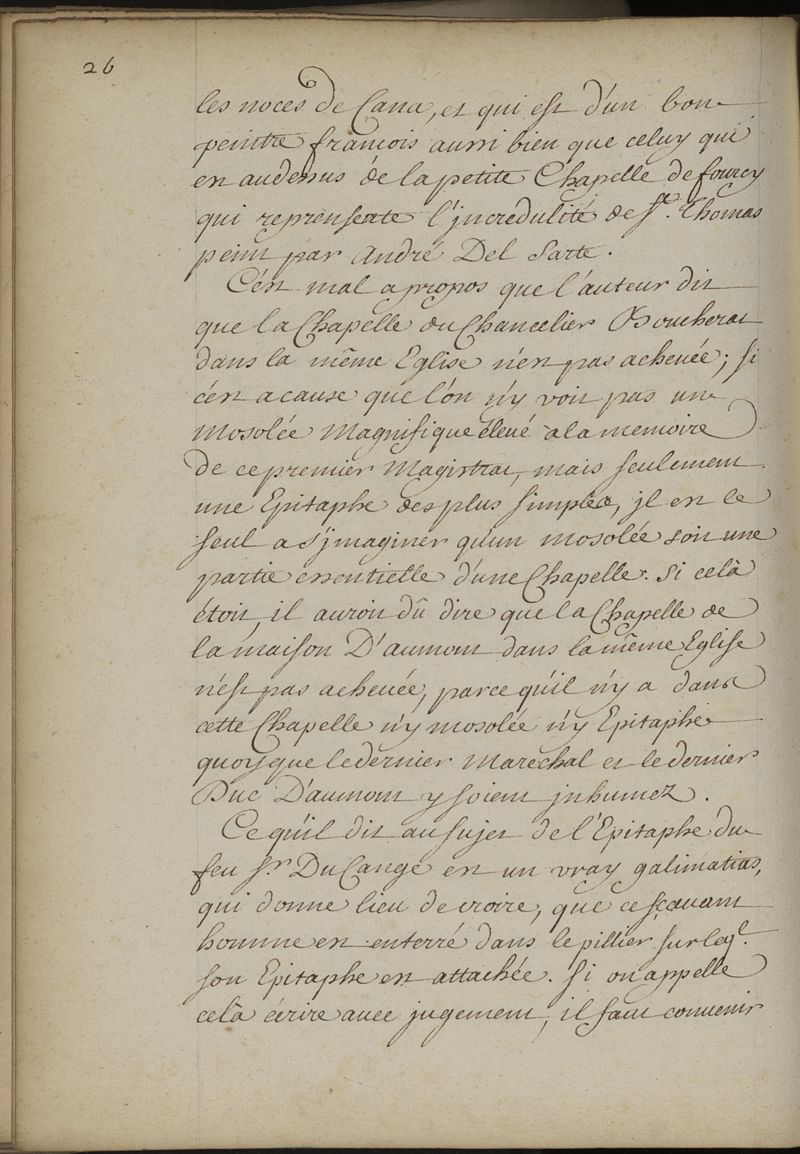 26
les noces de Cana, et qui est d'un bon
peintre francois aussi bien que celuy qui
en audessus de la petite Chapelle de fourcy
qui reprensente l'jncredulité de St. Thomas
peint par André Del Sarte.
C'est mal a propos que l'auteur dit
que la Chapelle du Chancelier Boucherat
dans la même Eglise n'est pas acheuée; si
c'est a cause que l'on n'y voit pas un
Mosolée Magnifique éleué a la memoire
de ce premier Magistrat, mais seulement
une Epitaphe des plus simples, jl est le
seul a s'jmaginer qu'un mosolée soit une
partie essentielle d'une Chapelle. Si celà
étoit, il auroit dû dire que la Chapelle de
la maison D'aumont dans la même Eglise
n'est pas acheuée, parce qu'il n'y a dans
cette Chapelle n'y mosolée n'y Epitaphe
quoy que le dernier Marechal et le dernier
Duc D'aumont y soient jnhumez.
Ce qu'il dit au sujet de l'Epitaphe du
feu Sr. Du Cange est un vray galimatias,
qui donne lieu de croire, que ce sçauant
homme est enterré dans le pillier sur leql.
son Epitaphe est attachée. Si on appelle
celà écrire auec jugement, il faut conuenir